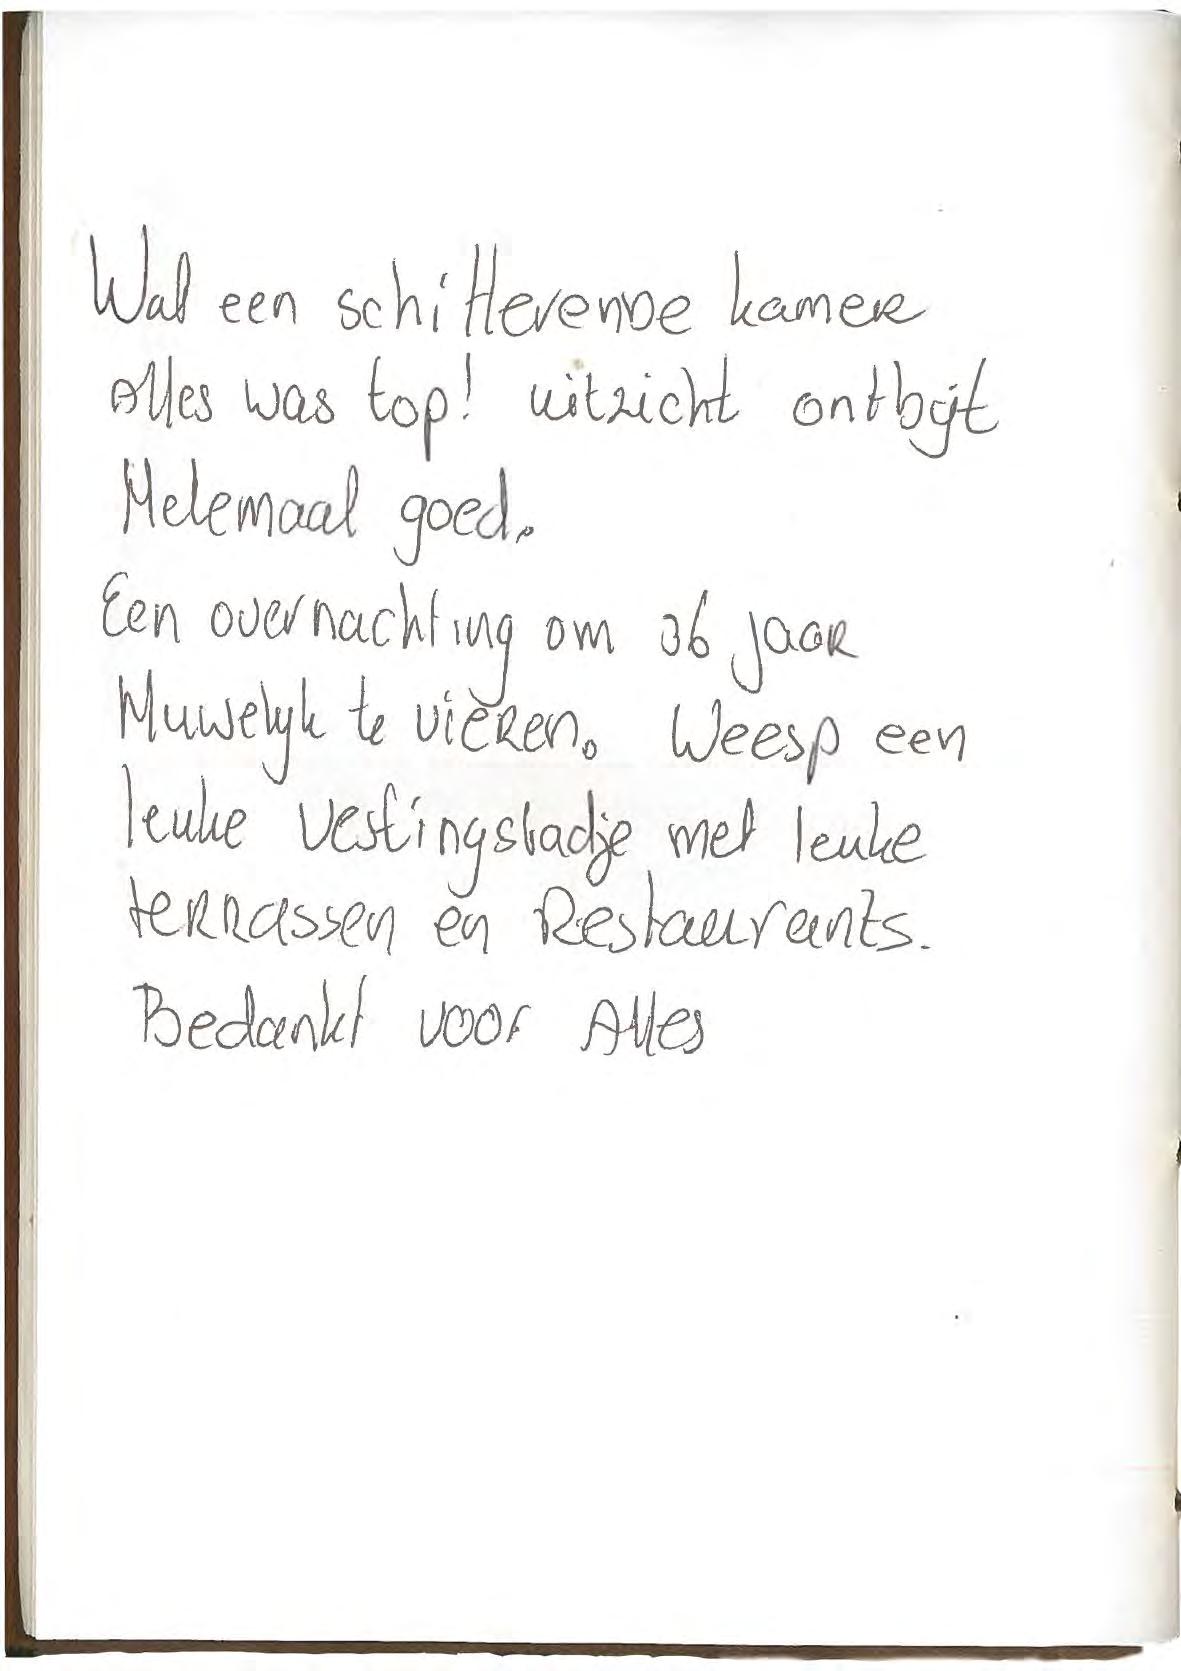 Wat een schitterende kamer
Alles was top! uitzicht ontbijt
Helemaal goed.
Een overnachting om 36 jaar
Huwelyk te vieren. Weesp een
leuke vestingstadje met leuke
terrassen en Restaurants.
Bedankt voor Alles